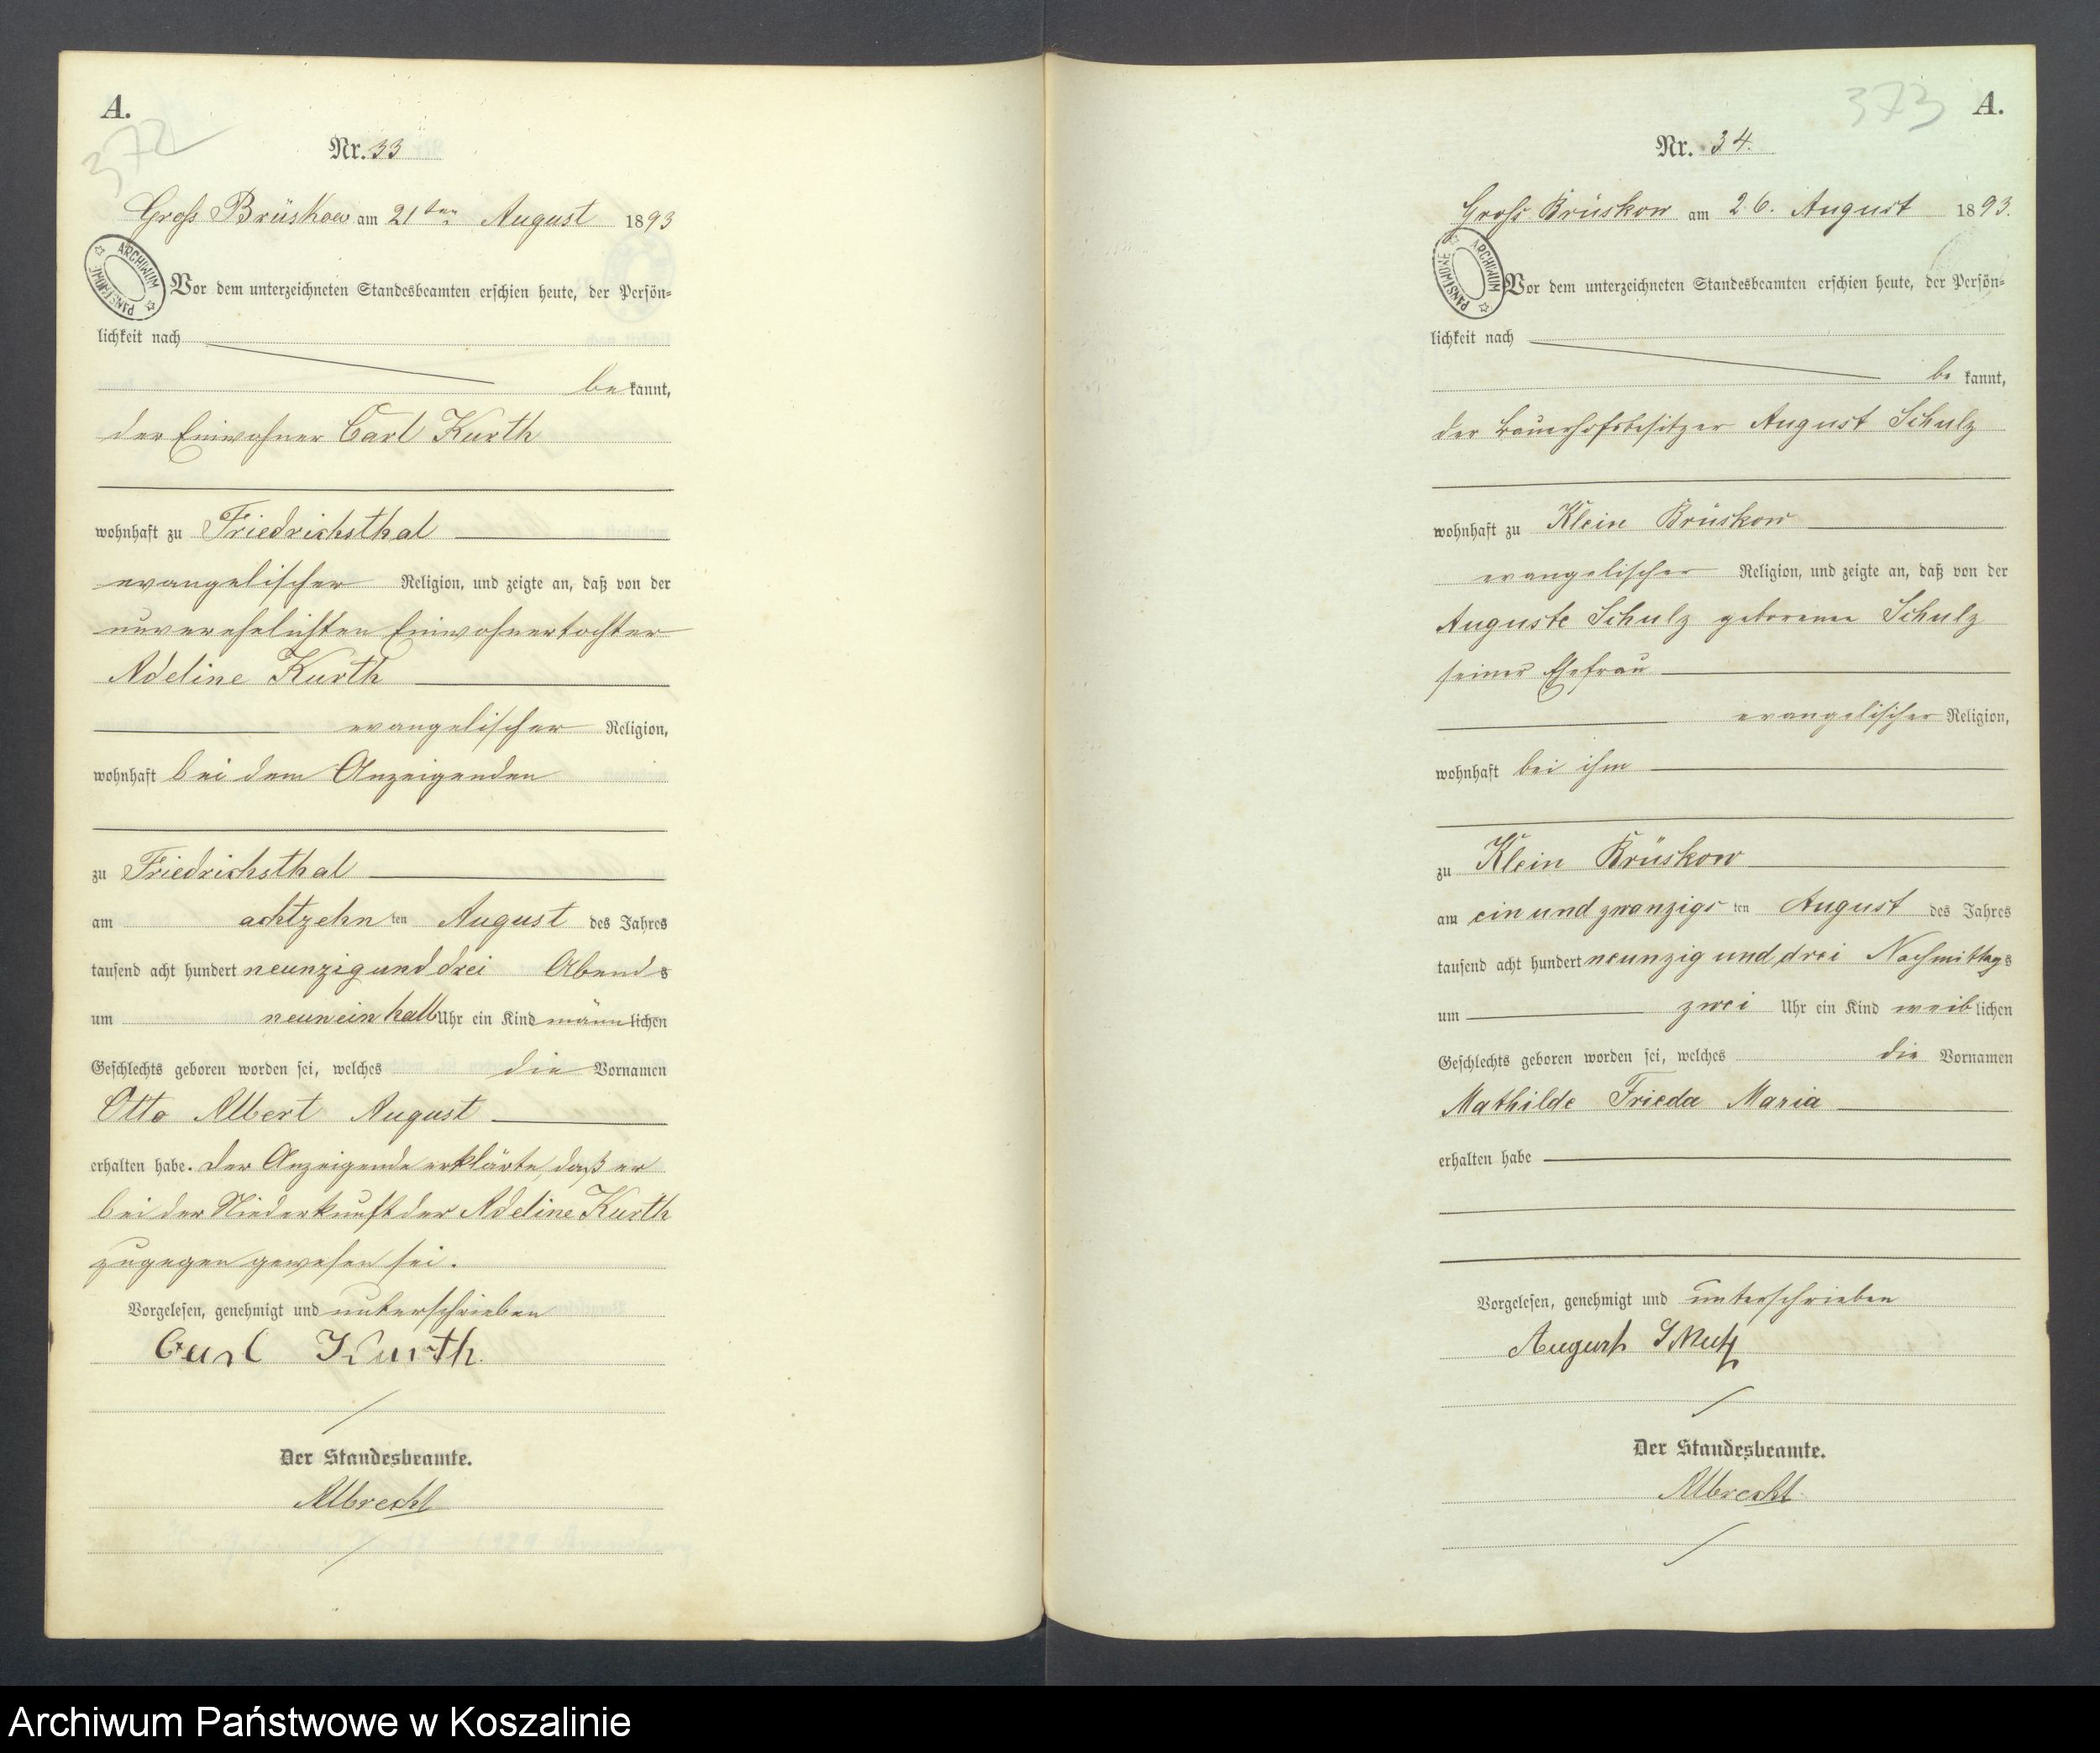 A.
372
Nr. 33
Gross Brüskow am 21ten August 1893
ARCHIWUM PAŃSTWOWE
Vor dem unterzeichneten Standesbeamten erschien heute, der Persön-
lichkeit nach
be kannt,
der Einwohner Carl Kurth
wohnhaft zu Friedrichsthal
evangelischer Religion, und zeigte an, daß von der
unverehelichten Einwohnertochter
Adeline Kurth
evangelischer Religion,
wohnhaft bei dem Anzeigenden
zu Friedrichsthal
am achtzehn ten August des Jahres
tausend acht hundert neunzig und drei Abends
um neun ein halb Uhr ein Kind männlichen
Geschlechts geboren worden sei, welches die Vornamen
Otto Albert August
erhalten habe. Der Anzeigende erklärte, daß er
bei der Niederkunft der Adeline Kurth
zugegen gewesen sei.
Vorgelesen, genehmigt und unterschrieben
Carl Kurth.
Der Standesbeamte.
Albrecht
373
A.
Nr. 34.
Gross Brüskow am 26. August 1893.
ARCHIWUM PAŃSTWOWE
Vor dem unterzeichneten Standesbeamten erschien heute, der Persön-
lichkeit nach
be kannt,
der Bauerhofsbesitzer August Schulz
wohnhaft zu Klein Brüskow
evangelischer Religion, und zeigte an, daß von der
Auguste Schulz geborenen Schulz
seiner Ehefrau
evangelischer Religion,
wohnhaft bei ihm
zu Klein Brüskow
am ein und zwanzigs ten August des Jahres
tausend acht hundert neunzig und drei Nachmittags
um zwei Uhr ein Kind weiblichen
Geschlechts geboren worden sei, welches die Vornamen
Mathilde Frieda Maria
erhalten habe
Vorgelesen, genehmigt und unterschrieben
August Schulz
Der Standesbeamte.
Albrecht
Archiwum Państwowe w Koszalinie